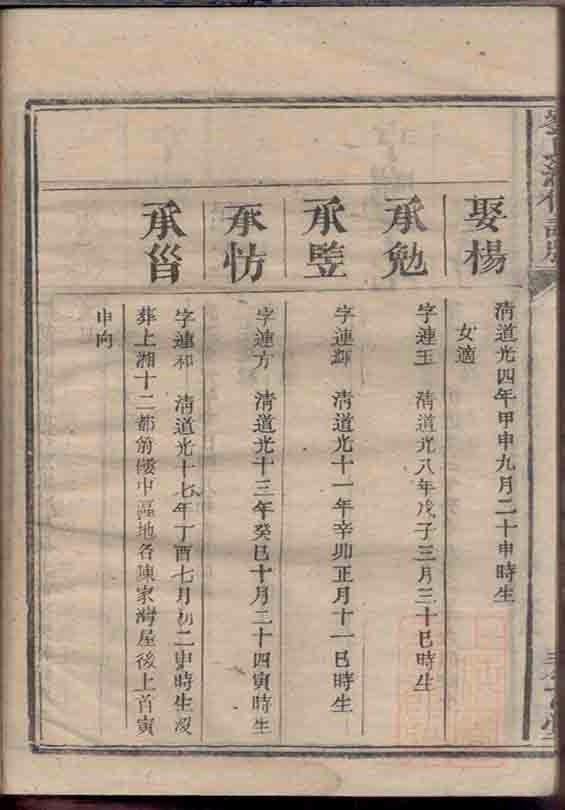 娶楊
清道光四年甲申九月二十申時生
女適
承勉
字連玉　清道光八年戊子三月三十巳時生
承壂
字連輝　清道光十一年辛卯正月十一巳時生
承怍
字連方　清道光十三年癸巳十月二十四寅時生
承㫺
字連和　清道光十七年丁酉七月初二申時生歿
葬上湘十二都前樓中區地名陳家灣屋後上首寅
申向